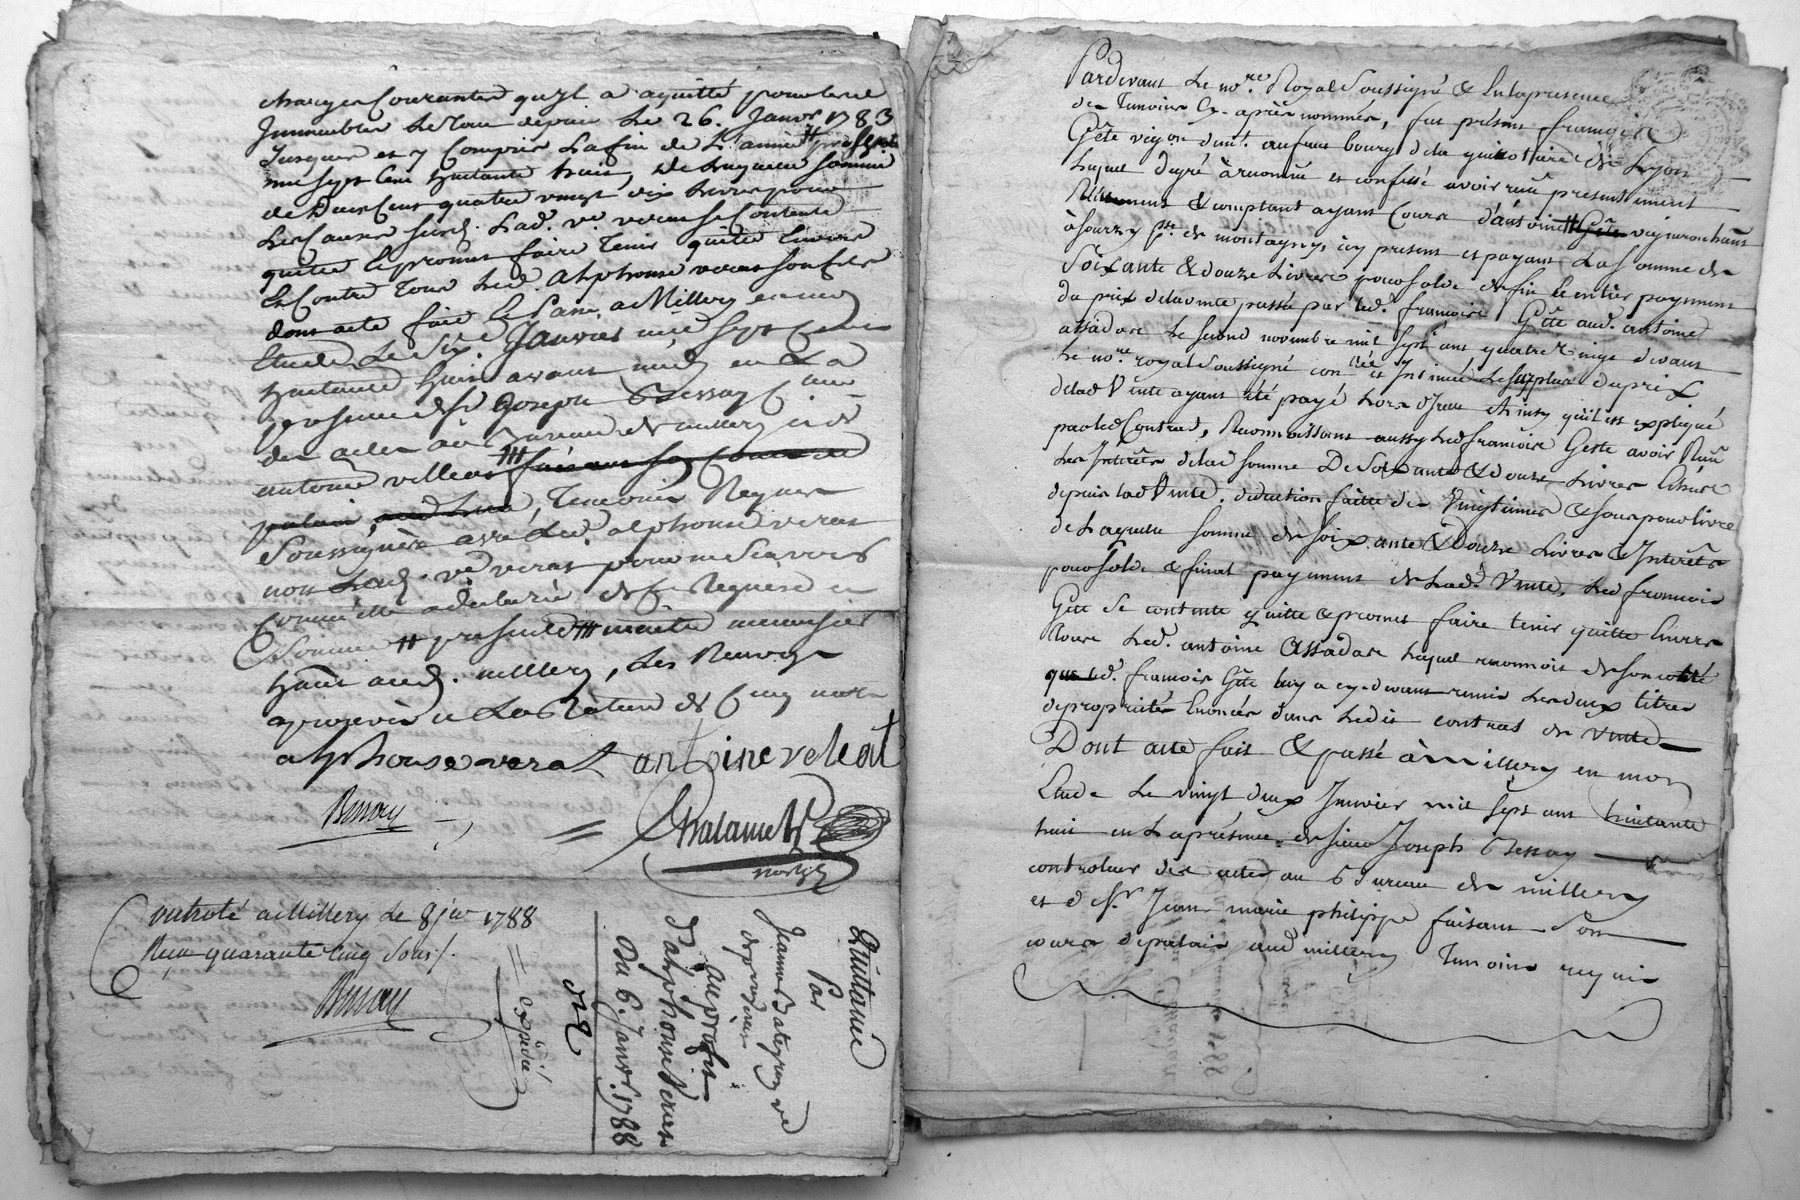 charges Courantes qu'il a aquitté pour les d
Immeubles le tout depuis le 26. Janvr 1783
Jusques et y Compris la fin de L'année
mil sept Cent huitante huit, de laquelle somme
de Deux Cent quatre vingt dix Livres pour
les Causes susd. Lad. ve. veras se Contente
quitte & promet faire tenir quitte Envers
Et Contre tous led. alphonse veras son fils
dont acte fait & Passé a Millery en mon
Etude Le Six Janvier mil Sept Cent
huitante huit avant midy en La
presence de Sr Joseph Bessay
des actes au Bureau de millery et de
antoine velleat
temoins Requis
Soussignés avec led. alphonse veras
non lad. ve veras pour ne Scavoir
Comme elle a declaré de ce Requise et
Sommée # presente ### maitre menuisier
aud. millery, les Renvoys
approuvés et La Rature de Cinq mots
alphonse veras antoine veleat
Bessay
Chalamel
nore
Controlé a Millery Le 8 jer 1788
Reçu quarante Cinq Sous
Bessay
expédié
Quittance
Par
Jeanne ve
au profit
d'alphonse veras
Du 6. Janvr. 1788
Pardevant Le nore. Royal Soussigné & En la presence
des temoins Cy après nommés, fut présent françois
Gête vigon demt. au faux bourg de la guillotiere de Lyon
Lequel de gré à reconnu et confessé avoir reçu présentement
Réellement & comptant ayant Cours d'antoine
à Sourzy psse. de montagny, icy present et payant La Somme de
Soixante & douze Livres pour solde & fin & entier payement
du prix de la vente passée par led. françois Gête aud. antoine
assadas le second novembre mil sept cent quatre vingt devant
Le nore. royal Soussigné controllé et Insinué le surplus du prix
de lad vente ayant été payé Lors d'Icelle & ainsy qu'il est expliqué
par led Contrat, Reconnoissant aussy led françois Geste avoir Reçu
Les Intérêts de lad somme De Soixante & douze Livres Echus
depuis lad vente. déduction faitte des Vingtiemes & sous pour livre
de Laquelle somme de soixante & Douze Livres & Intérêts
pour solde & final payement de Lad. Vente. led françois
Gete Se contente quitte & promet faire tenir quitte Envers
tous led. antoine Assadas lequel reconnoit de son cotté
que led. françois Gête luy a cy devant remis les deux titres
de propriétés Enoncés dans ledit contrat de vente
Dont acte fait & passé à Millery en mon
Etude Le vingt deux Janvier mil sept cent huitante
huit en La présence de sieur Joseph Bessay
controleur des actes au Bureau de millery
et de Sr Jean marie philippe faisant Son
cours de palais aud millery temoins requis